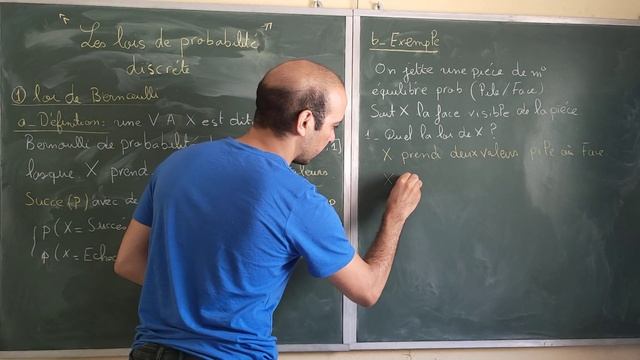 Les lois de probabilité
discrète
① loi de Bernoulli
a_ Définition: une V A X est dit
Bernoulli de probabilité 1]
lorsque X prend valeurs
Succe(P) avec de
p(X = Succès
p(X = Echec
b_ Exemple
On jette une pièce de m°
équilibre prob (Pile/Face)
Suit X la face visible de la pièce
1_ Quel la loi de X ?
X prend deux valeurs pile où Face
X